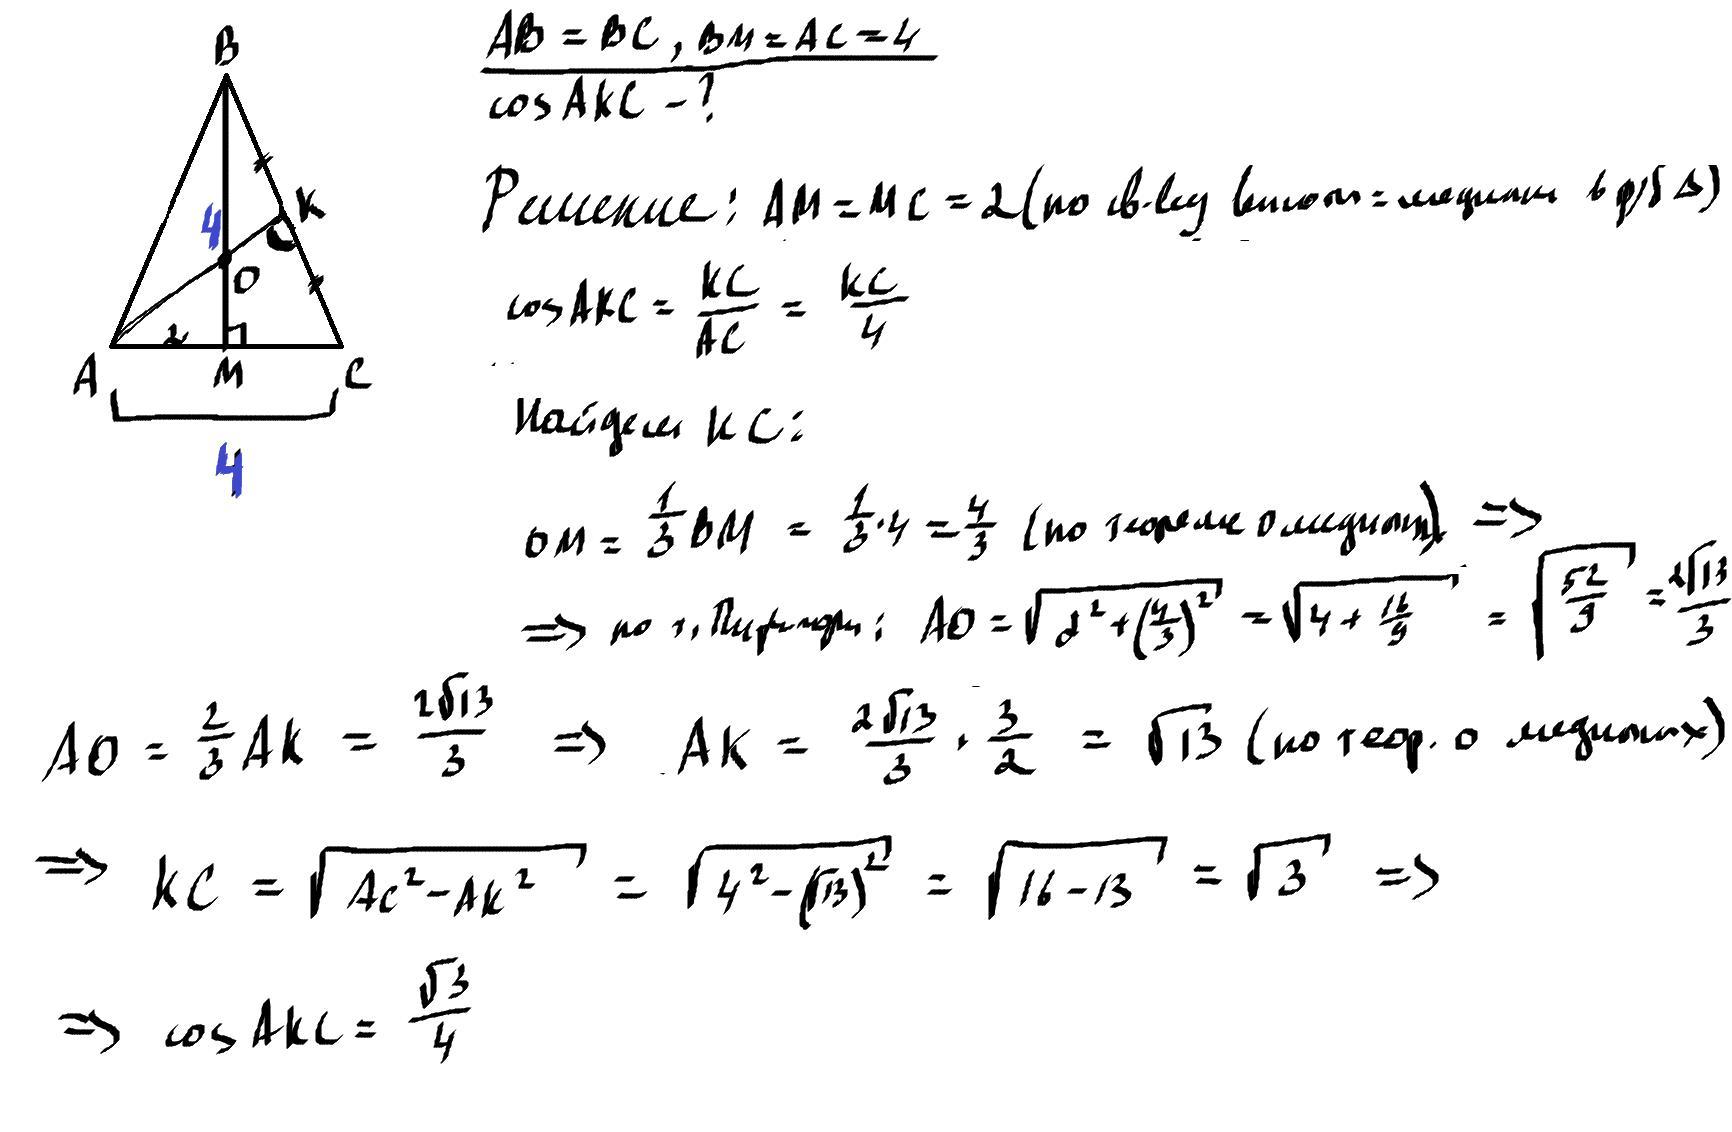 B
K
4
O
2
A M C
4
AB = BC, BM = AC = 4
cos AKC - ?
Решение: AM = MC = 2 (по св-ву высоты = медианы в р/б Δ)
cos AKC = KC/AC = KC/4
Найдем KC:
OM = 1/3 BM = 1/3 · 4 = 4/3 (по теореме о медианах) =>
=> по т. Пифагора: AO = √(2² + (4/3)²) = √(4 + 16/9) = √(52/9) = 2√13/3
AO = 2/3 AK = 2√13/3 => AK = 2√13/3 · 3/2 = √13 (по теор. о медианах)
=> KC = √(AC² - AK²) = √(4² - (√13)²) = √(16 - 13) = √3 =>
=> cos AKC = √3/4